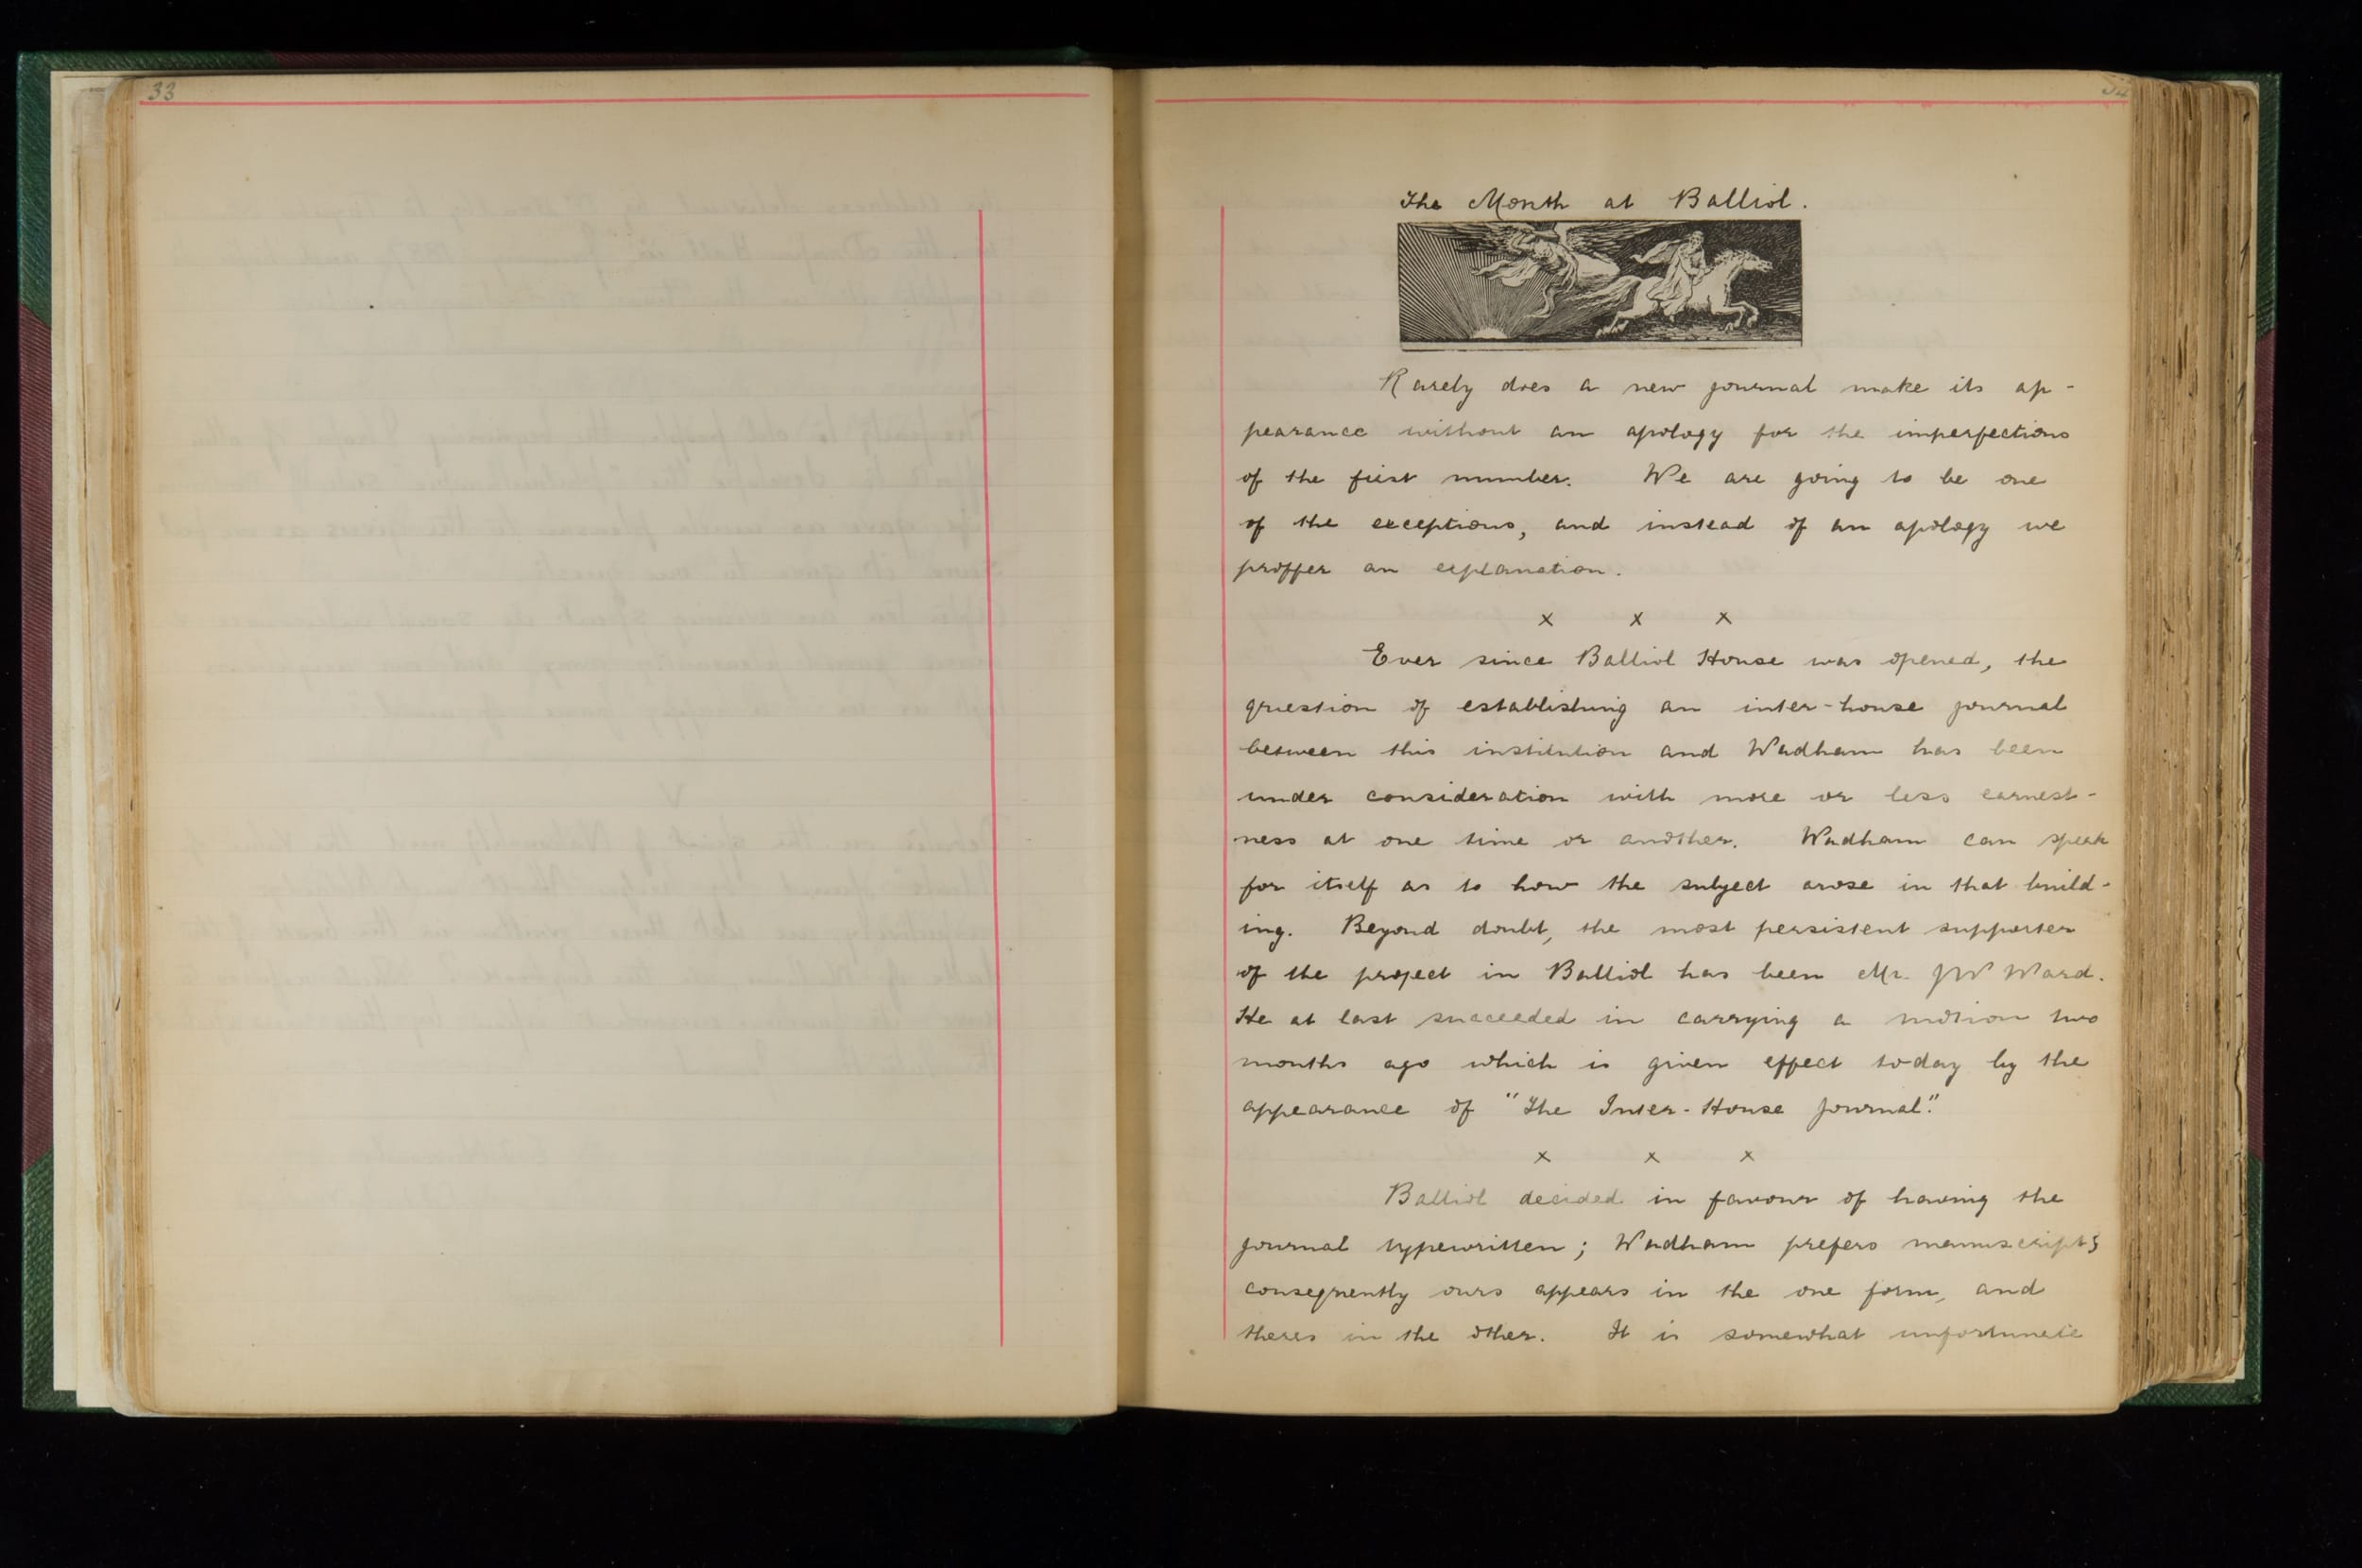 33
34
The Month at Balliol.
Rarely does a new journal make its ap-
pearance without an apology for the imperfections
of the first number. We are going to be one
of the exceptions, and instead of an apology we
proffer an explanation.
x x x
Ever since Balliol House was opened, the
question of establishing an inter-house journal
between this institution and Wadham has been
under consideration with more or less earnest-
ness at one time or another. Wadham can speak
for itself as to how the subject arose in that build-
ing. Beyond doubt, the most persistent supporter
of the project in Balliol has been Mr. JW Ward.
He at last succeeded in carrying a motion two
months ago which is given effect today by the
appearance of "The Inter-House Journal."
x x x
Balliol decided in favour of having the
journal typewritten; Wadham prefers manuscript;
consequently ours appears in the one form, and
theirs in the other. It is somewhat unfortunate